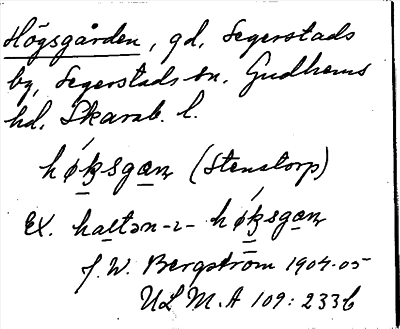 Högsgården, gd, Segerstads
by, Segerstads sn. Gudhems
hd. Skarab. l.
(Stenstorp)
Ex.
J. W. Bergström 1904-05
ULMA 109: 233 b